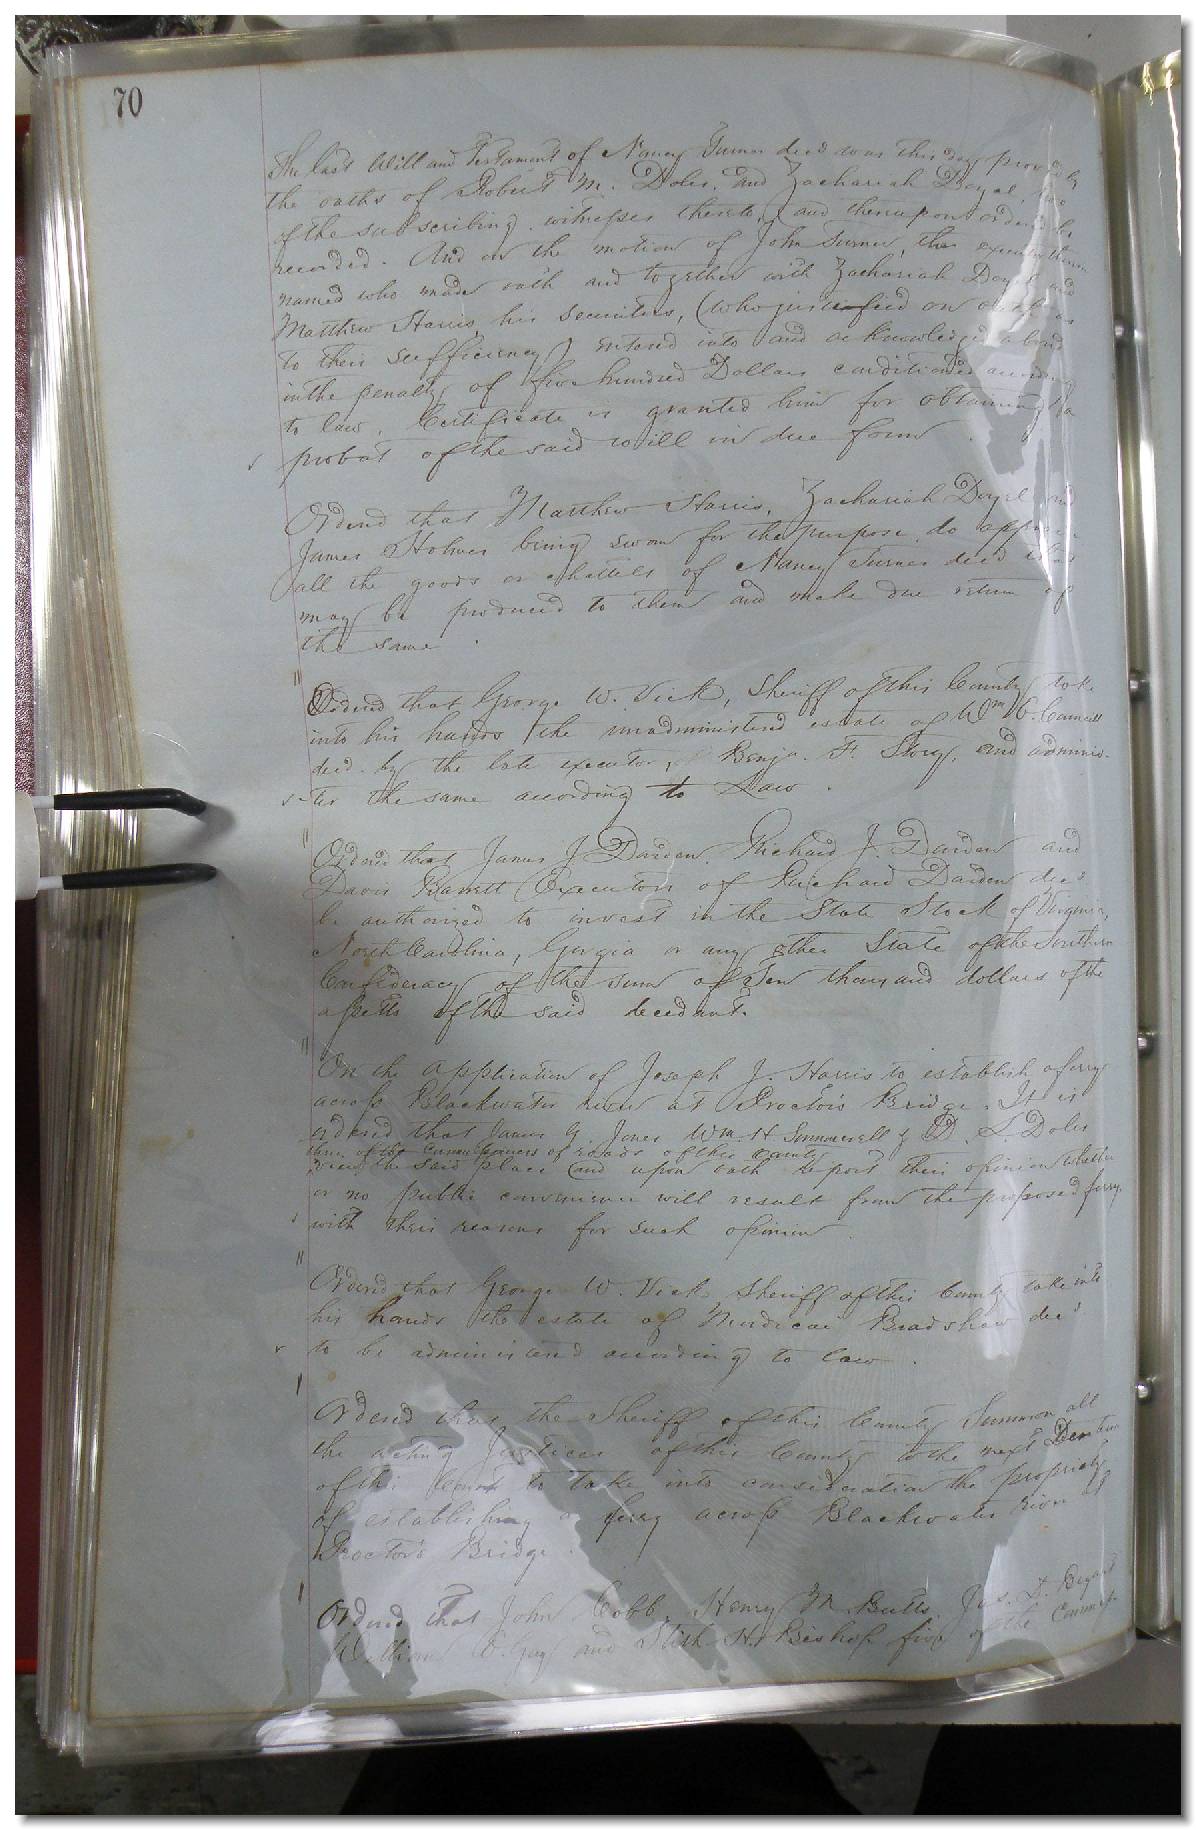 70
The last Will and Testament of Nancy Turner decd was this day proved by
the oaths of Robert M. Doles, and Zachariah Doyel, two
of the subscribing witnesses thereto, and thereupon ordered be
recorded. And on the motion of John Turner, the executor therein
named who made oath and together with Zachariah Doyel and
Matthew Harris, his securities, (who justified on oath as
to their sufficiency) entered into and acknowledged a bond
in the penalty of five hundred Dollars conditioned according
to law. Certificate is granted him for obtaining a
probat of the said will in due form.
Ordered that Matthew Harris, Zachariah Doyel and
James Holmes being sworn for the purpose do appraise
all the goods or chattels of Nancy Turner decd that
may be produced to them and make due return of
the same.
Ordered that George W. Vick, Sheriff of this County take
into his hands the unadministered estate of Wm
decd. by the late executor, Benja. F. Story, and adminis-
ter the same according to Law.
Ordered that James J Darden, Richard J. Darden and
Davis Barrett Executors of Richard Darden decd
be authorized to invest in the State Stock of Virginia,
North Carolina, Georgia or any other State of the Southern
Confederacy of the sum of Ten thousand dollars of the
assetts of the said decedant.
On the application of Joseph J. Harris to establish a ferry
across Blackwater river at Proctors Bridge. It is
ordered that James G. Jones Wm. H Summerell & D. L. Doles
three of the Commissioners of roads of this county
view the said place and upon oath report their opinion whether
or no public convenience will result from the proposed ferry,
with their reasons for such opinion.
Ordered that George W. Vick Sheriff of this County take into
his hands the estate of Mordicai Bradshaw decd
to be administered according to law.
Ordered that the Sheriff of this County Summon all
the acting Justices of this County to the next Term
of this Court to take into consideration the propriety
of establishing a ferry across Blackwater river at
Proctor's Bridge.
Ordered that John Cobb, Henry M. Butts, Jas. D. Bryant
William O. Gay and Slith H. Bishop five of the Commiss-